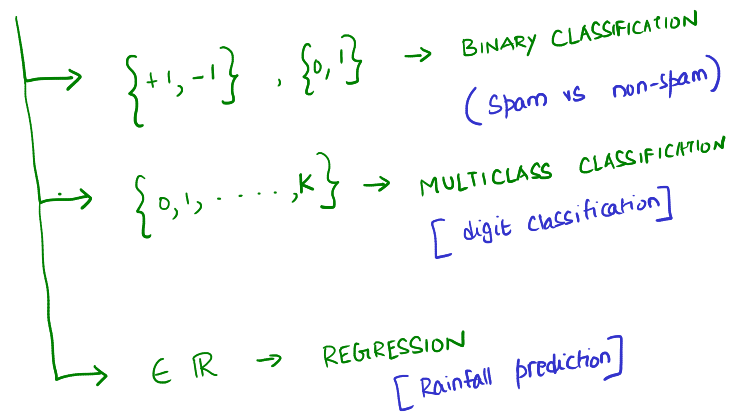 {+1, -1} , {0, 1} → BINARY CLASSIFICATION
(spam vs non-spam)
{0, 1, ·····, K} → MULTICLASS CLASSIFICATION
[digit classification]
∈ ℝ → REGRESSION
[Rainfall prediction]